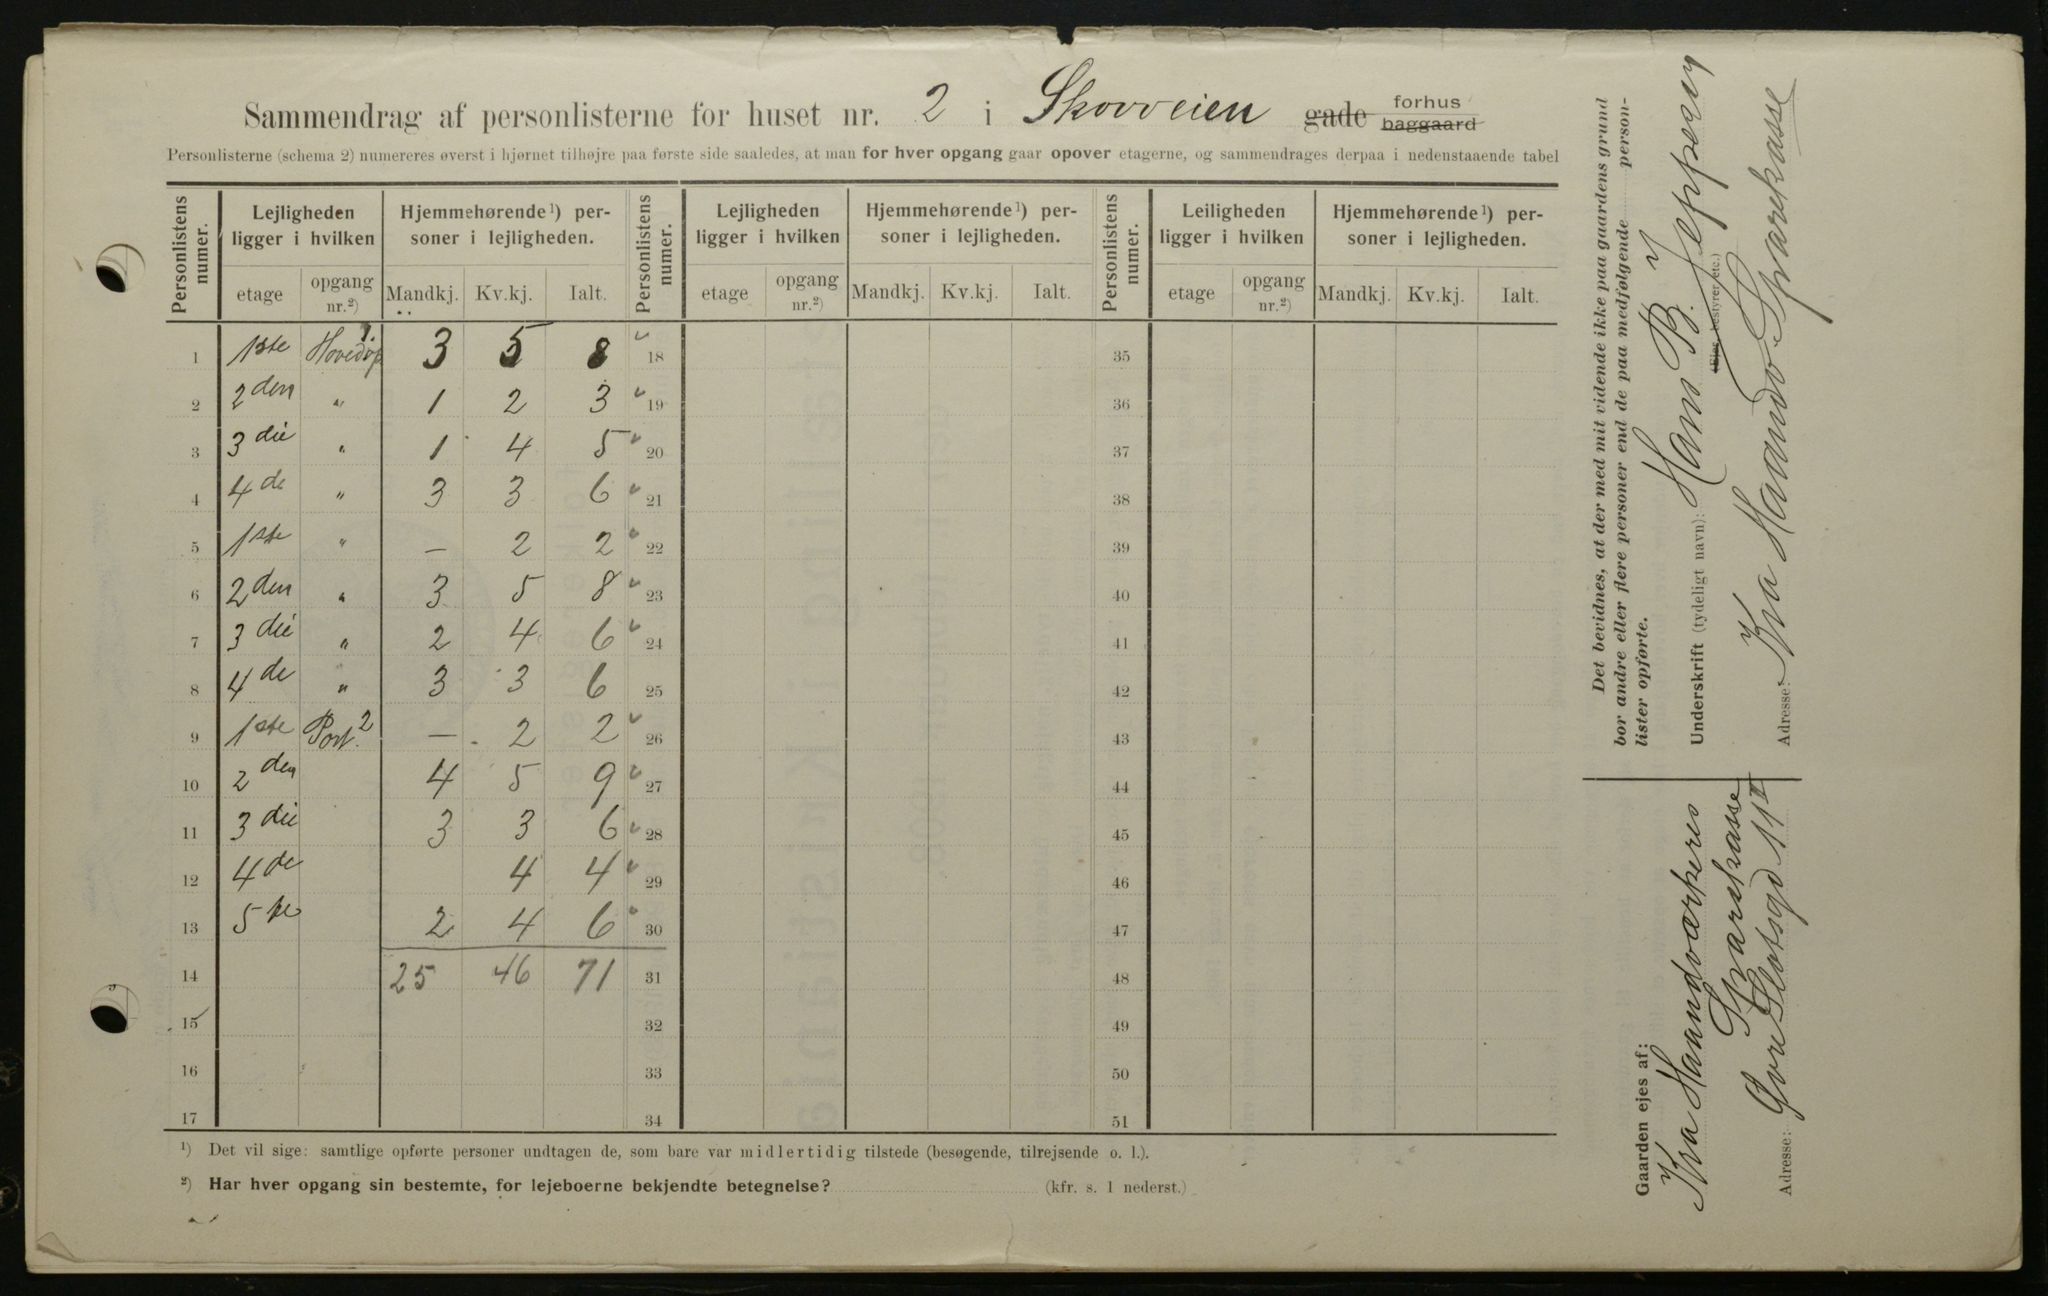 Sammendrag af personlisterne for huset nr. 2 i Skovveien gade forhus baggaard
Personlisterne (schema 2) numereres øverst i hjørnet tilhøjre paa første side saaledes, at man for hver opgang gaar opover etagerne, og sammendrages derpaa i nedenstaaende tabel
Personlistens numer. Lejligheden ligger i hvilken Hjemmehørende ¹) personer i lejligheden. Personlistens numer. Lejligheden ligger i hvilken Hjemmehørende ¹) personer i lejligheden. Personlistens numer. Leiligheden ligger i hvilken Hjemmehørende ¹) personer i lejligheden.
etage opgang nr.²) Mandkj. Kv.kj. Ialt. etage opgang nr.²) Mandkj. Kv.kj. Ialt. etage opgang nr.²) Mandkj. Kv.kj. Ialt.
1 1ste Hovedop 1 3 5 8 18 35
2 2den " 1 2 3 19 36
3 3die " 1 4 5 20 37
4 4de " 3 3 6 21 38
5 1ste " — 2 2 22 39
6 2den " 3 5 8 23 40
7 3die " 2 4 6 24 41
8 4de " 3 3 6 25 42
9 1ste Port. 2 — 2 2 26 43
10 2den 4 5 9 27 44
11 3die 3 3 6 28 45
12 4de 4 4 29 46
13 5te 2 4 6 30 47
14 25 46 71 31 48
15 32 49
16 33 50
17 34 51
¹) Det vil sige: samtlige opførte personer undtagen de, som bare var midlertidig tilstede (besøgende, tilrejsende o. l.).
²) Har hver opgang sin bestemte, for lejeboerne bekjendte betegnelse? (kfr. s. 1 nederst.)
Det bevidnes, at der med mit vidende ikke paa gaardens grund
bor andre eller flere personer end de paa medfølgende personlister opførte.
Underskrift (tydeligt navn): Hans B. Jeppesen
(Ejer, bestyrer etc.)
Adresse: Kra Haandv. Sparekasse
Gaarden ejes af:
Kra Haandværkeres
Sparekasse
Adresse: Øvre Slotsgd 11 II